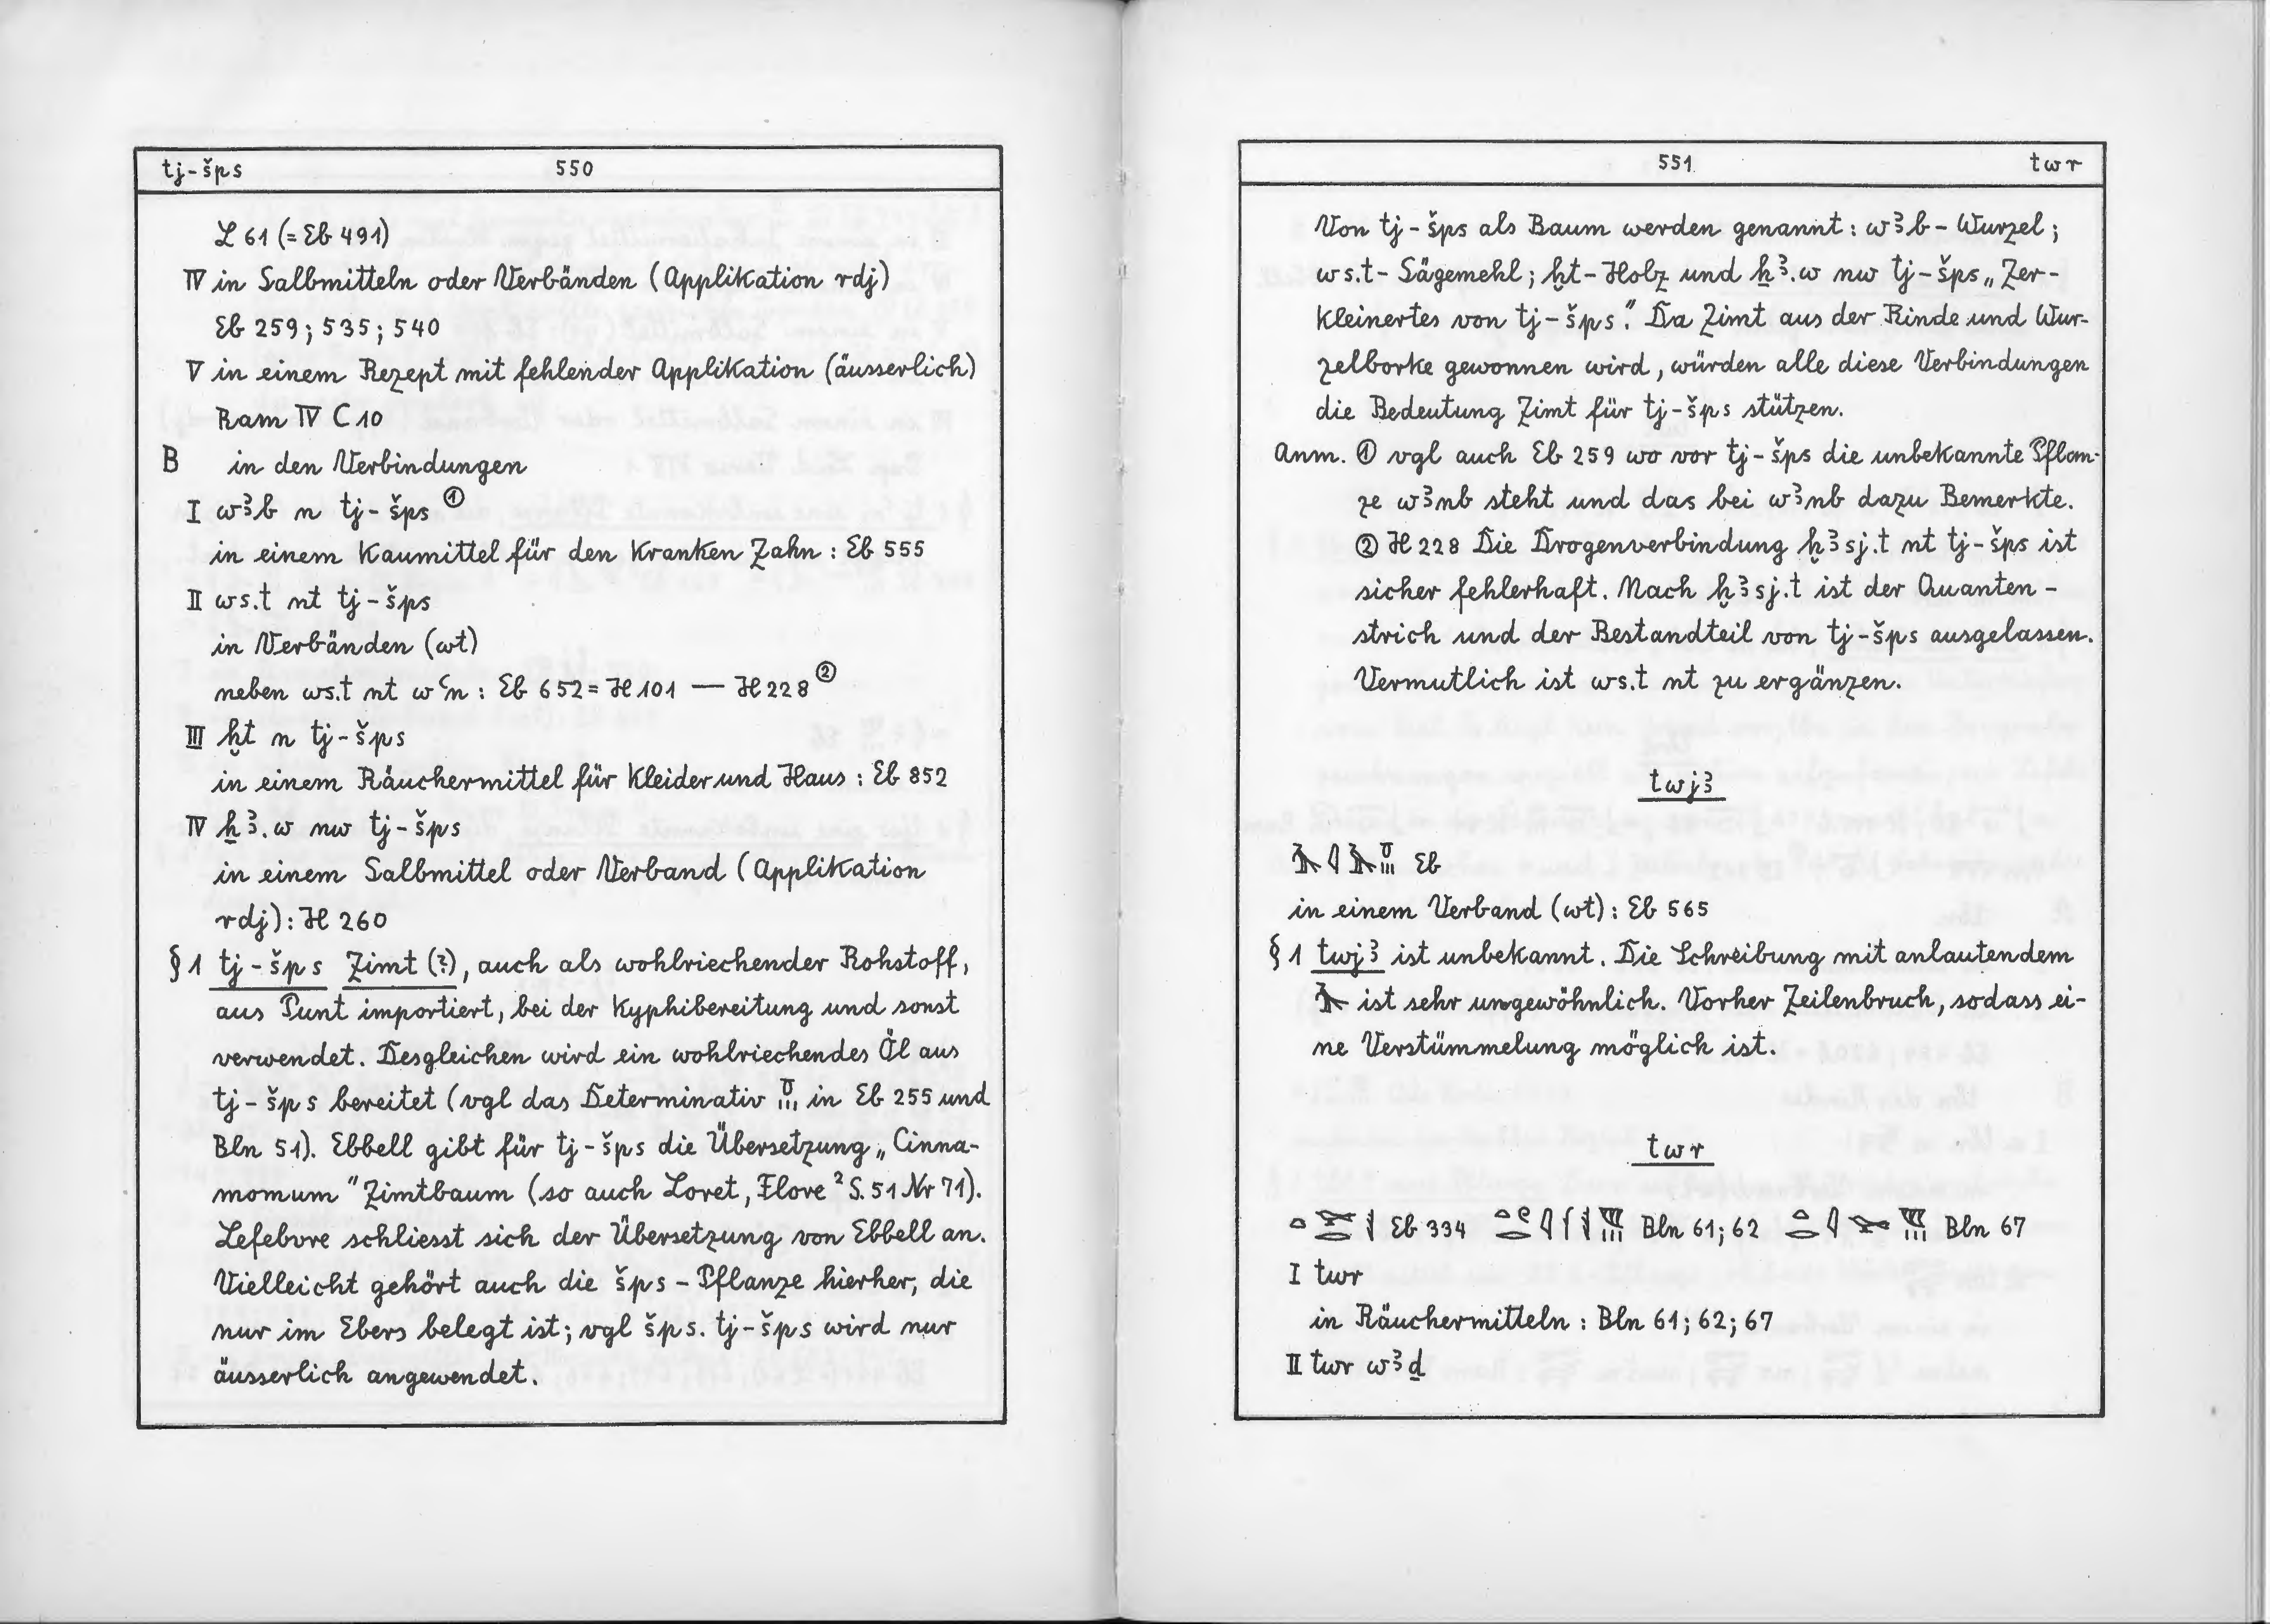 tj-šps 550
L 61 (= Eb 491)
IV in Salbmitteln oder Verbänden (Applikation rdj)
Eb 259; 535; 540
V in einem Rezept mit fehlender Applikation (äusserlich)
Ram IV C 10
B in den Verbindungen
I wꜣb n tj-šps ①
in einem Kaumittel für den kranken Zahn : Eb 555
II ws.t nt tj-šps
in Verbänden (wt)
neben ws.t nt wꜥn : Eb 652 = H 101 — H 228 ②
III ḫt n tj-šps
in einem Räuchermittel für Kleider und Haus : Eb 852
IV ẖꜣ.w nw tj-šps
in einem Salbmittel oder Verband (Applikation
rdj) : H 260
§ 1 tj-šps Zimt (?), auch als wohlriechender Rohstoff,
aus Punt importiert, bei der Kyphibereitung und sonst
verwendet. Desgleichen wird ein wohlriechendes Öl aus
tj-šps bereitet (vgl das Determinativ 𓏊𓏥 in Eb 255 und
Bln 51). Ebbell gibt für tj-šps die Übersetzung „Cinna-
momum" Zimtbaum (so auch Loret, Flore ² S. 51 Nr 71).
Lefebvre schliesst sich der Übersetzung von Ebbell an.
Vielleicht gehört auch die šps-Pflanze hierher, die
nur im Ebers belegt ist; vgl šps. tj-šps wird nur
äusserlich angewendet.
551 twr
Von tj-šps als Baum werden genannt : wꜣb-Wurzel;
ws.t-Sägemehl; ḫt-Holz und ẖꜣ.w nw tj-šps „Zer-
kleinertes von tj-šps". Da Zimt aus der Rinde und Wur-
zelborke gewonnen wird, würden alle diese Verbindungen
die Bedeutung Zimt für tj-šps stützen.
Anm. ① vgl auch Eb 259 wo vor tj-šps die unbekannte Pflan-
ze wꜣnb steht und das bei wꜣnb dazu Bemerkte.
② H 228 Die Drogenverbindung ḫꜣsj.t nt tj-šps ist
sicher fehlerhaft. Nach ḫꜣsj.t ist der Quanten-
strich und der Bestandteil von tj-šps ausgelassen.
Vermutlich ist ws.t nt zu ergänzen.
twjꜣ
Eb
in einem Verband (wt) : Eb 565
§ 1 twjꜣ ist unbekannt. Die Schreibung mit anlautendem
ist sehr ungewöhnlich. Vorher Zeilenbruch, sodass ei-
ne Verstümmelung möglich ist.
twr
Eb 334 Bln 61; 62 Bln 67
I twr
in Räuchermitteln : Bln 61; 62; 67
II twr wꜣḏ